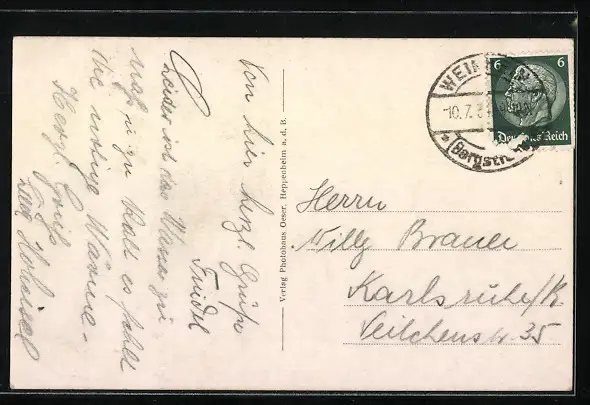 Von hier herzl. Grüße
Friedel
Leider ist das Wasser zu
naß u. zu kalt es fehlt
die nötige Wärme –
Herzl. Gruß
Verlag Photohaus Oeser, Heppenheim a. d. B.
WEINHEIM
10.7.3
(Bergstr.
6 6
Deutsches Reich
Herrn
Willy Brauer
Karlsruhe/R.
Veilchenstr. 35